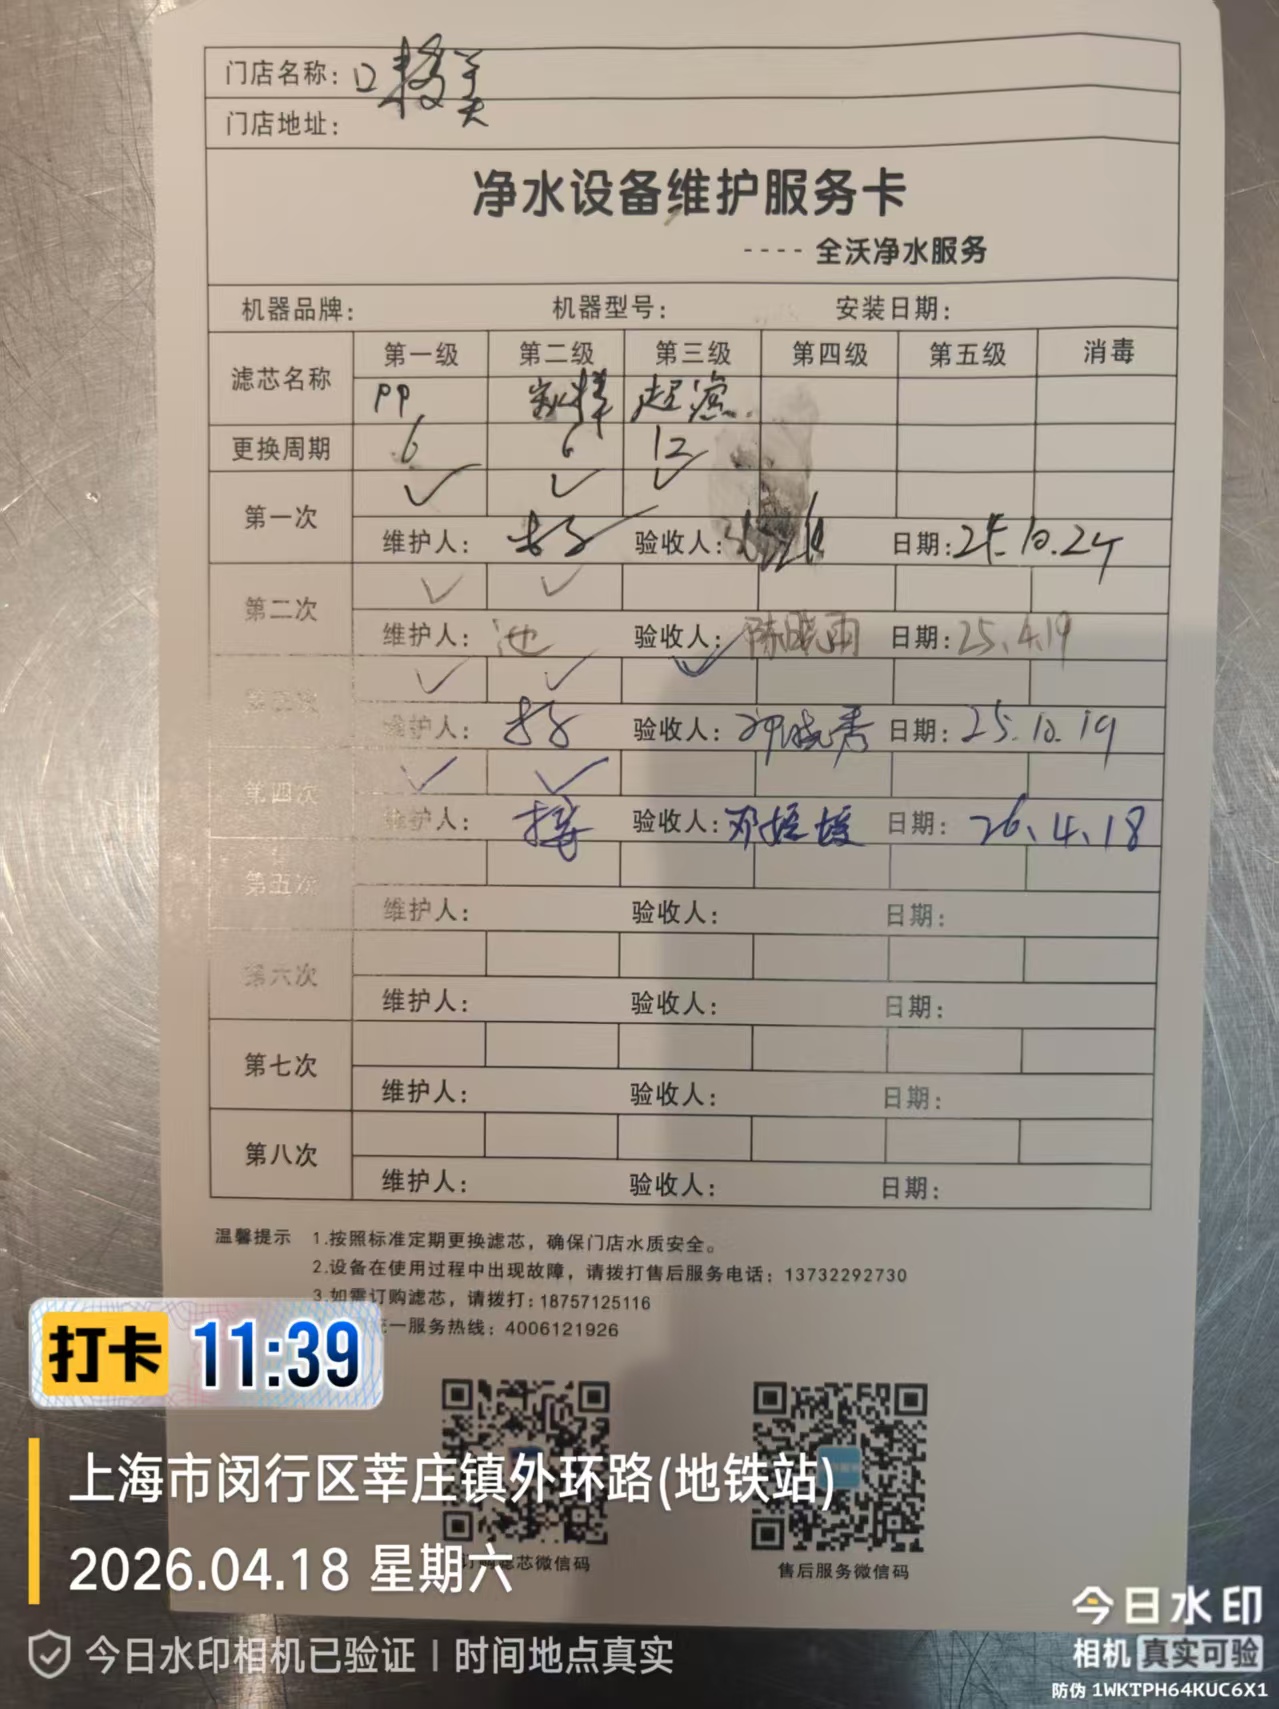 门店名称：口
门店地址：
净水设备维护服务卡
---- 全沃净水服务
机器品牌： 机器型号： 安装日期：
滤芯名称 第一级 第二级 第三级 第四级 第五级 消毒
PP 超滤
更换周期 6 6 12
第一次 ✓ ✓ ✓
维护人： 验收人： 日期：24.10.24
第二次 ✓ ✓
维护人：池 验收人：陈晓雨 日期：25.4.19
第三次 ✓ ✓ ✓
维护人： 验收人： 日期：25.10.19
第四次 ✓ ✓
维护人： 验收人：邓 日期：26.4.18
第五次
维护人： 验收人： 日期：
第六次
维护人： 验收人： 日期：
第七次
维护人： 验收人： 日期：
第八次
维护人： 验收人： 日期：
温馨提示 1.按照标准定期更换滤芯，确保门店水质安全。
2.设备在使用过程中出现故障，请拨打售后服务电话：13732292730
3.如需订购滤芯，请拨打：18757125116
一服务热线：4006121926
打卡 11:39
上海市闵行区莘庄镇外环路(地铁站)
2026.04.18 星期六
滤芯微信码
售后服务微信码
今日水印相机已验证 | 时间地点真实
今日水印
相机 真实可验
防伪 1WKTPH64KUC6X1